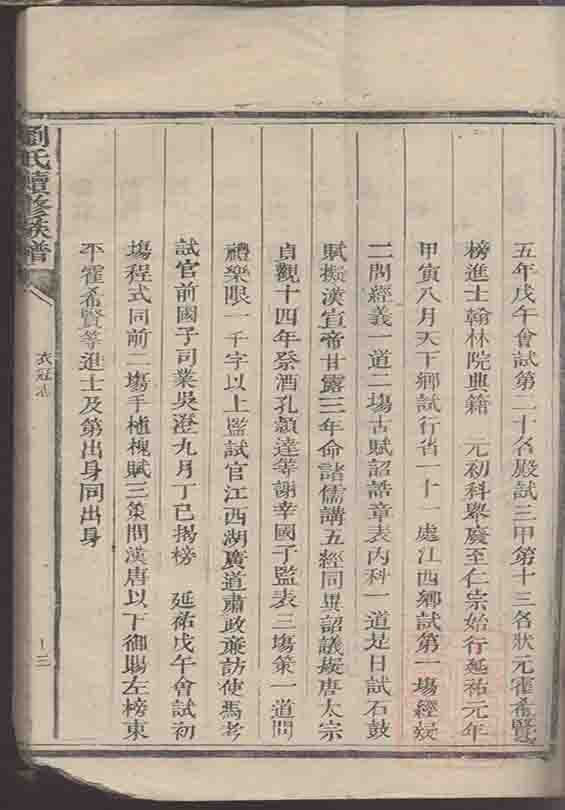 五年戊午會試第二十名殿試三甲第十三名狀元霍希賢
榜進士翰林院典籍　元初科舉廢至仁宗始行延祐元年
甲寅八月天下鄉試行省一十一處江西鄉試第一場經疑
二問經義一道二場古賦詔誥章表內科一道是日試石鼓
賦擬漢宣帝甘露三年命諸儒講五經同異詔議擬唐太宗
貞觀十四年祭酒孔穎達等謝幸國子監表三塲策一道問
禮樂限一千字以上監試官江西湖廣道肅政廉訪使馬
試官前國子司業吳澄九月丁巳揭榜　延祐戊午會試初
塲程式同前二塲手植槐賦三策問漢唐以下御賜左榜東
平霍希賢等進士及第出身同出身
劉氏續修族譜
衣冠志
十三